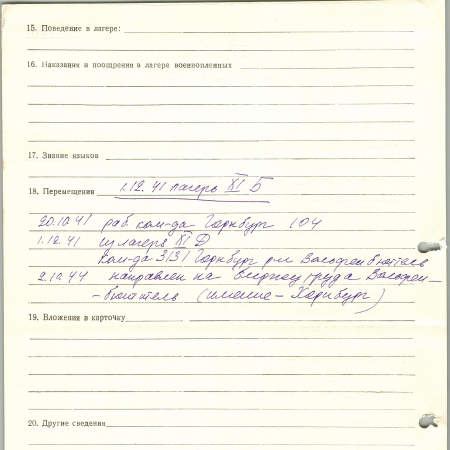 15. Поведение в лагере:
16. Наказания и поощрения в лагере военнопленных
17. Знание языков
18. Перемещения 1.12.41 лагерь XI Б
20.10.41 раб. ком-да Горнбург 104
1.12.41 из лагеря XI Д
ком-да 3131 Горнбург р-н
2.10.44 направлен на биржу труда
(имение - Хорнбург)
19. Вложения в карточку
20. Другие сведения